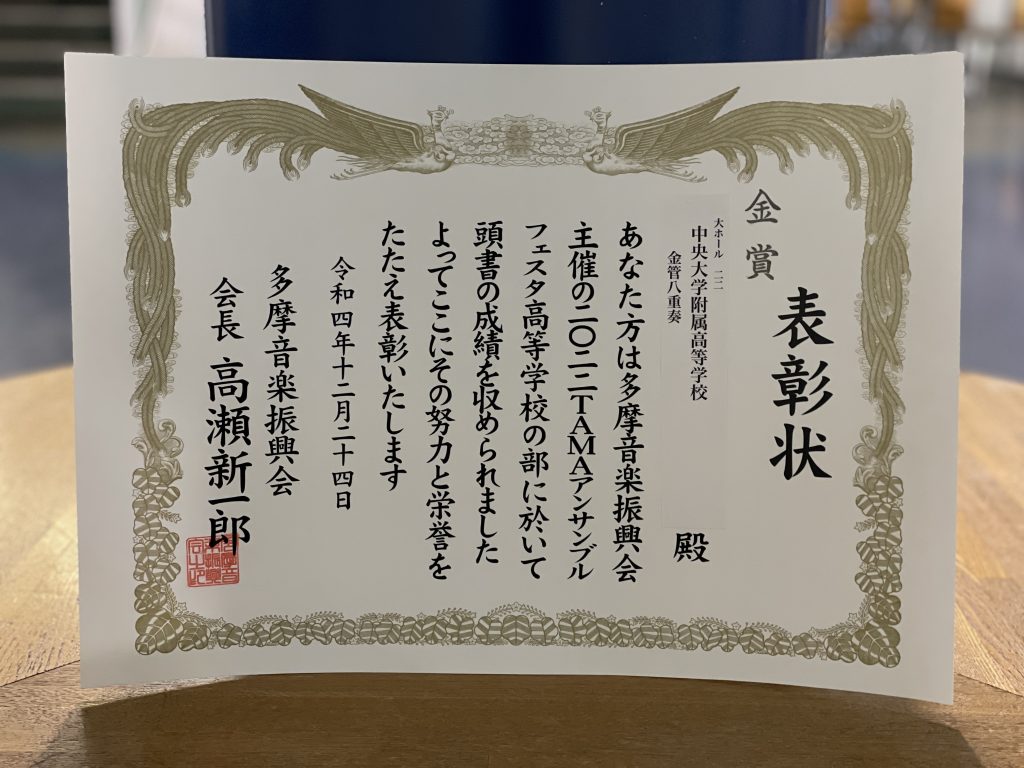 表彰状
金賞
大ホール 二二
中央大学附属高等学校
金管八重奏
殿
あなた方は多摩音楽振興会
主催の二〇二二TAMAアンサンブル
フェスタ高等学校の部に於いて
頭書の成績を収められました
よってここにその努力と栄誉を
たたえ表彰いたします
令和四年十二月二十四日
多摩音楽振興会
会長 高瀬新一郎